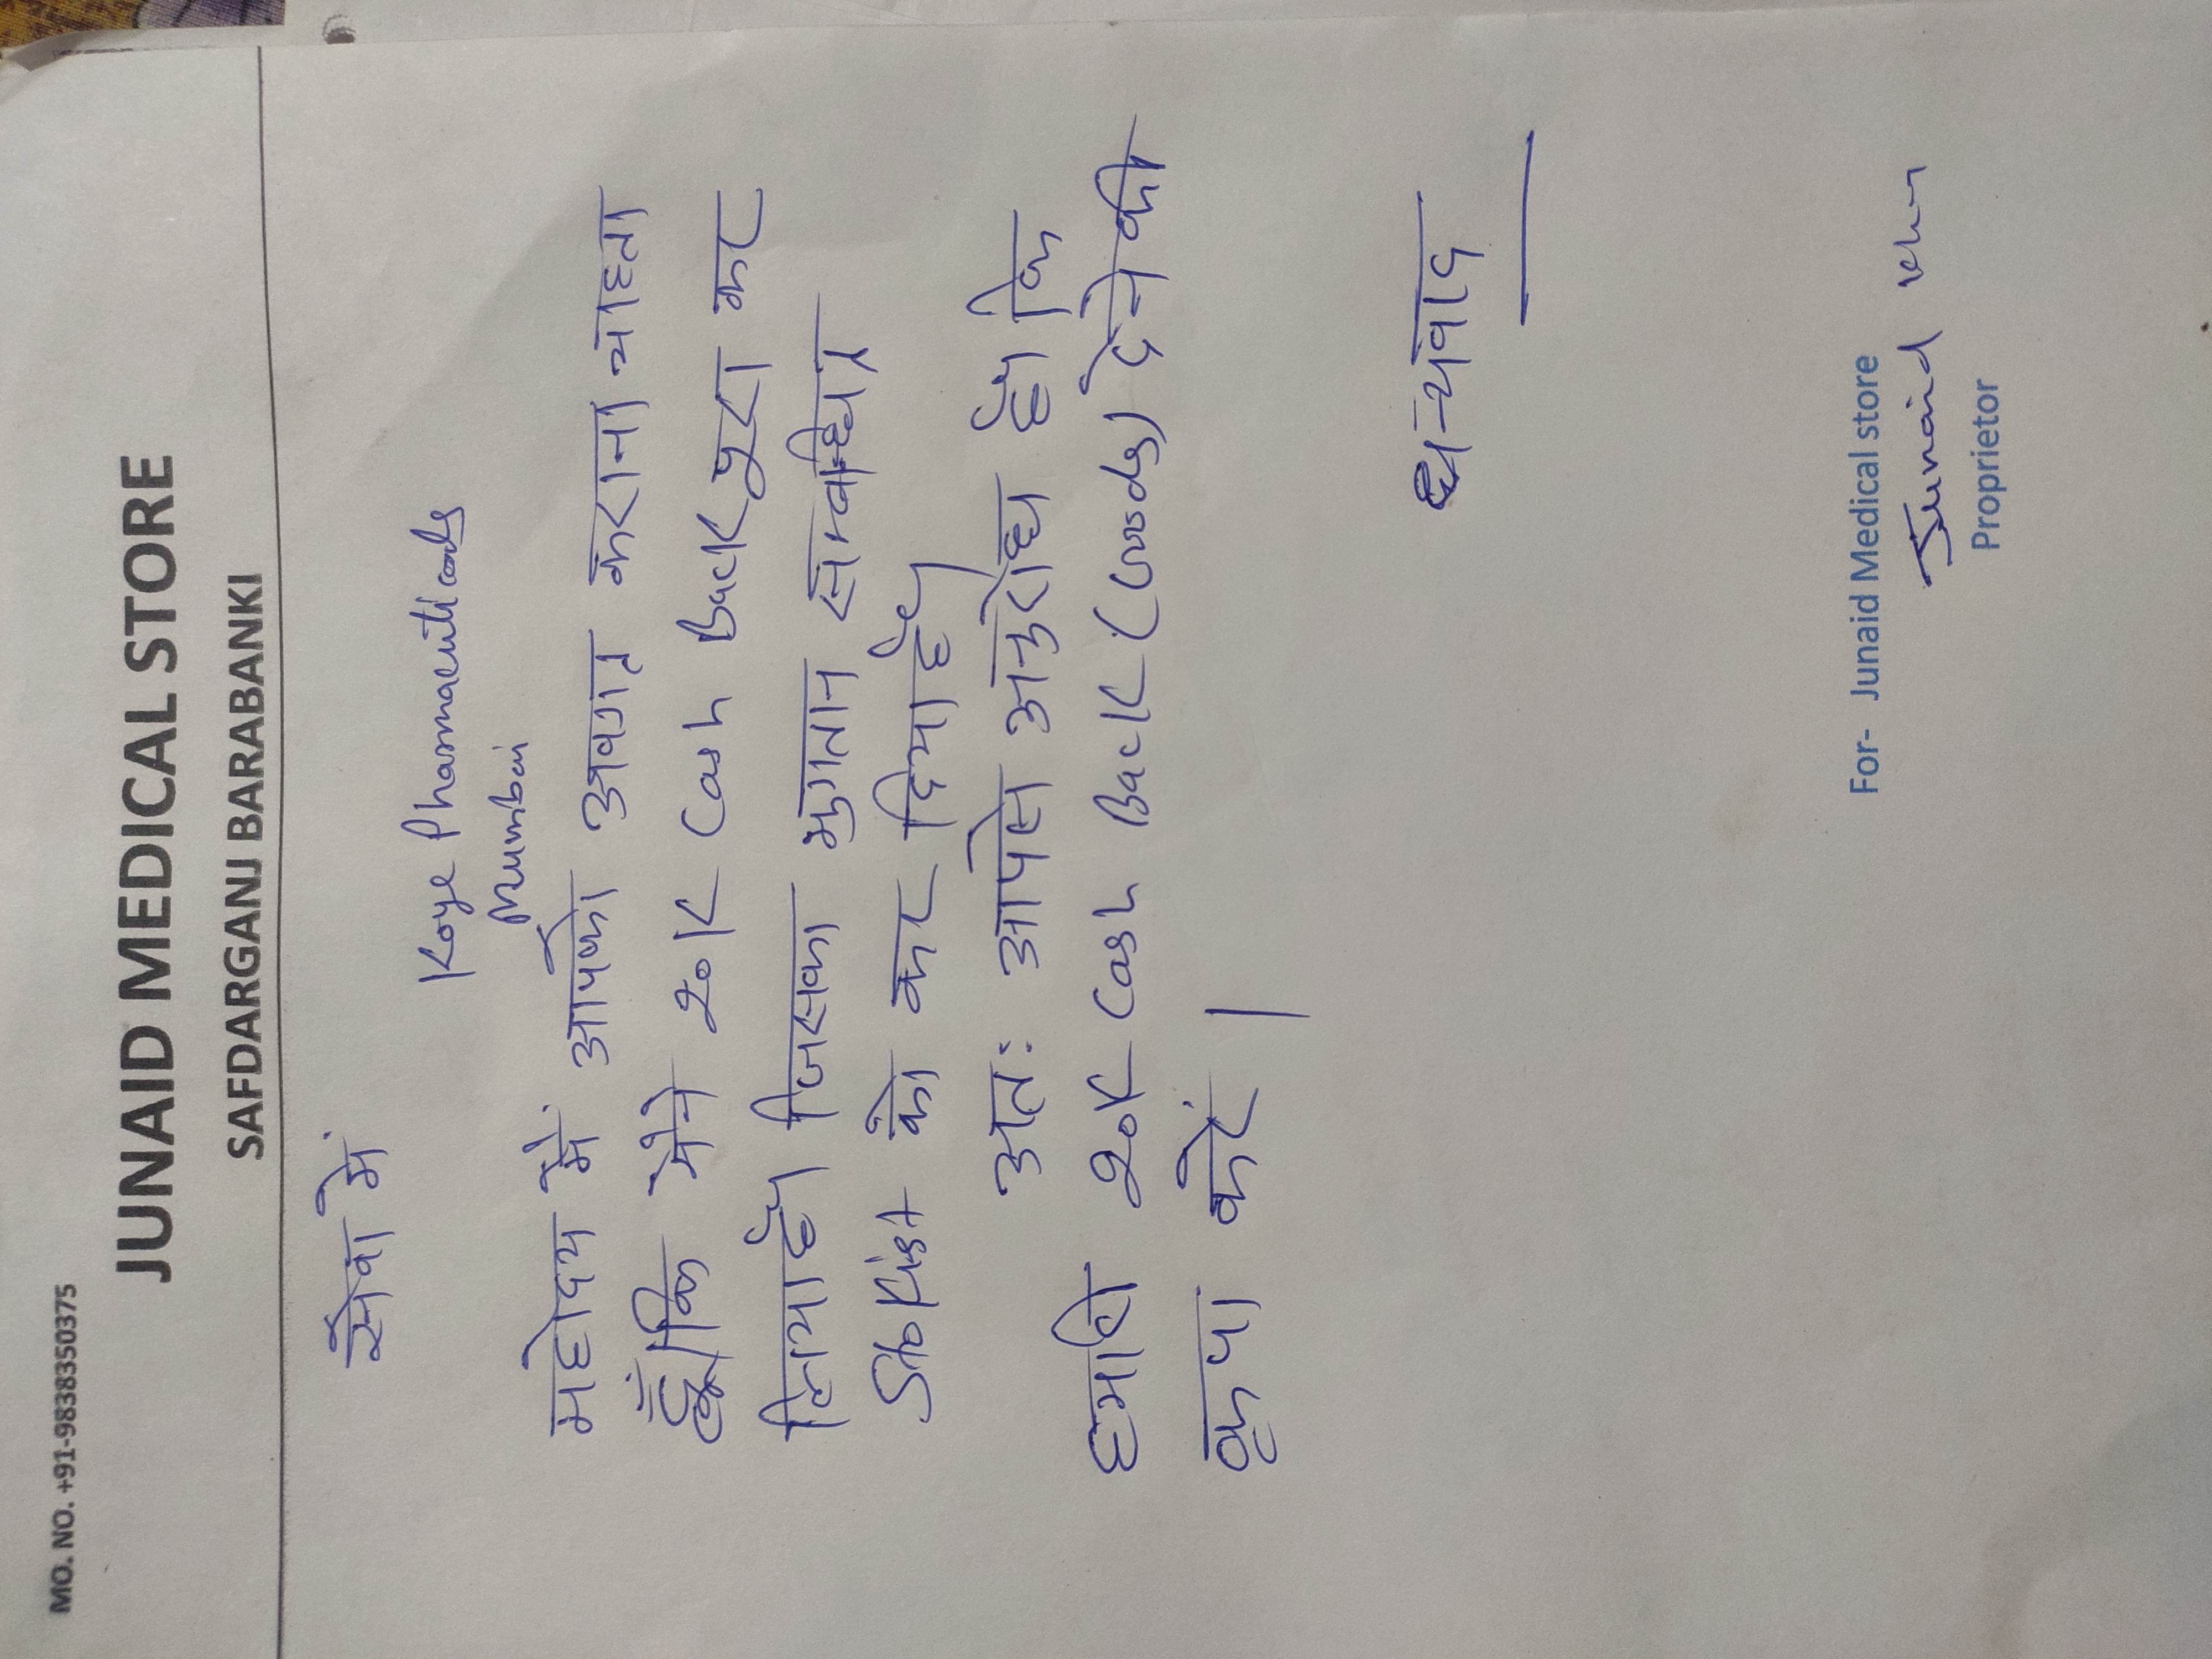 MO. NO. +91-9838350375
JUNAID MEDICAL STORE
SAFDARGANJ BARABANKI
सेवा में
Koye Pharmaceuticals
Mumbai
महोदय में आपको अवगत कराना चाहता
हूँ कि मैने 20K Cash Back पूरा कर
लिया है। जिसका भुगतान सम्बन्धित
Stokist को कर दिया है।
अतः आपसे अनुरोध है। कि
हमारे 20K Cash Back (Goods) देने की
कृपा करें।
धन्यवाद
For- Junaid Medical store
Junaid Khan
Proprietor